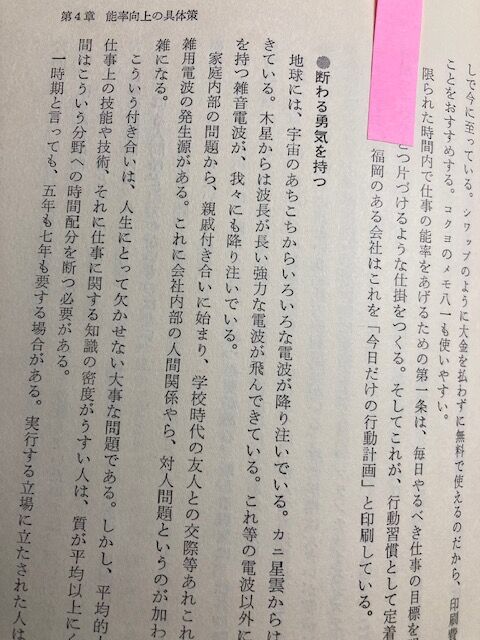 第4章 能率向上の具体策
しで今に至っている。シワップのように大金を払わずに無料で使えるのだから、印刷費
ことをおすすめする。コクヨのメモ八一も使いやすい。
限られた時間内で仕事の能率をあげるための第一条は、毎日やるべき仕事の目標を
つ片づけるような仕掛をつくる。そしてこれが、行動習慣として定着
福岡のある会社はこれを「今日だけの行動計画」と印刷している。
●断わる勇気を持つ
地球には、宇宙のあちこちからいろいろな電波が降り注いでいる。カニ星雲からは
きている。木星からは波長が長い強力な電波が飛んできている。これ等の電波以外に
を持つ雑音電波が、我々にも降り注いでいる。
家庭内部の問題から、親戚付き合いに始まり、学校時代の友人との交際等あれこれ
雑用電波の発生源がある。これに会社内部の人間関係やら、対人問題というのが加わ
雑になる。
こういう付き合いは、人生にとって欠かせない大事な問題である。しかし、平均的
仕事上の技能や技術、それに仕事に関する知識の密度がうすい人は、質が平均以上に
間はこういう分野への時間配分を断つ必要がある。
一時期と言っても、五年も七年も要する場合がある。実行する立場に立たされた人は